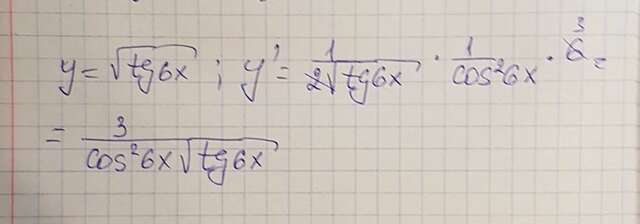 y = √tg6x ; y' = 1/(2√tg6x) · 1/(cos²6x) · 6̶ 3 =
= 3/(cos²6x√tg6x)